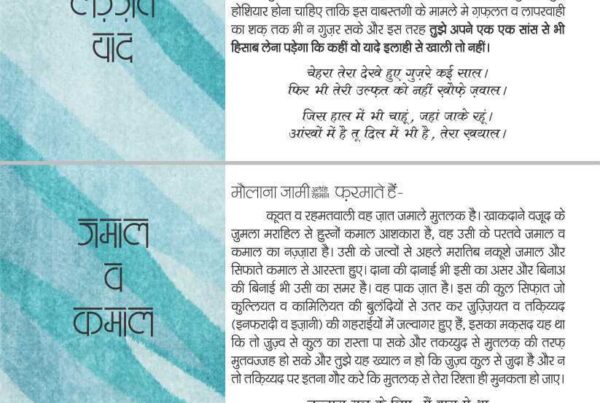 लज़्ज़त
याद
होशियार होना चाहिए ताकि इस वाबस्तगी के मामले मे ग़फ़लत व लापरवाही
का शक़ तक भी न गुज़र सके और इस तरह तुझे अपने एक एक सांस से भी
हिसाब लेना पड़ेगा कि कहीं वो यादे इलाही से खाली तो नहीं।
चेहरा तेरा देखे हुए गुज़रे कई साल।
फिर भी तेरी उल्फ़त को नहीं ख़ौफ़े ज़वाल।
जिस हाल में भी चाहूं, जहां जाके रहूं।
आंखों में है तू दिल में भी है, तेरा ख़याल।
जमाल
व
कमाल
मौलाना जामी फ़रमाते हैं-
कूवत व रहमतवाली वह ज़ात जमाले मुतलक है। खाकदाने वजूद के
जुमला मराहिल से हुस्नों कमाल आशकारा है, वह उसी के परतवे जमाल व
कमाल का नज़्ज़ारा है। उसी के जल्वों से अहले मरातिब नकूशे जमाल और
सिफाते कमाल से आरस्ता हुए। दाना की दानाई भी इसी का असर और बिनाअ
की बिनाई भी उसी का समर है। वह पाक ज़ात है। इस की कुल सिफ़ात जो
कुल्लियत व कामिलियत की बुलंदियों से उतर कर जुज़्ज़ियत व तकि़य्यद
(इनफरादी व इज़ानी) की गहराईयों में जल्वागर हुए हैं, इसका मक़सद यह था
कि तो जुज़्व से कुल का रास्ता पा सके और तकय्युद से मुतलक़ की तरफ़
मुतवज्जह हो सके और तुझे यह ख्याल न हो कि जुज़्व कुल से जुदा है और न
तो तकि़य्यद पर इतना गौर करे कि मुतलक़ से तेरा रिश्ता ही मुनकता हो जाए।